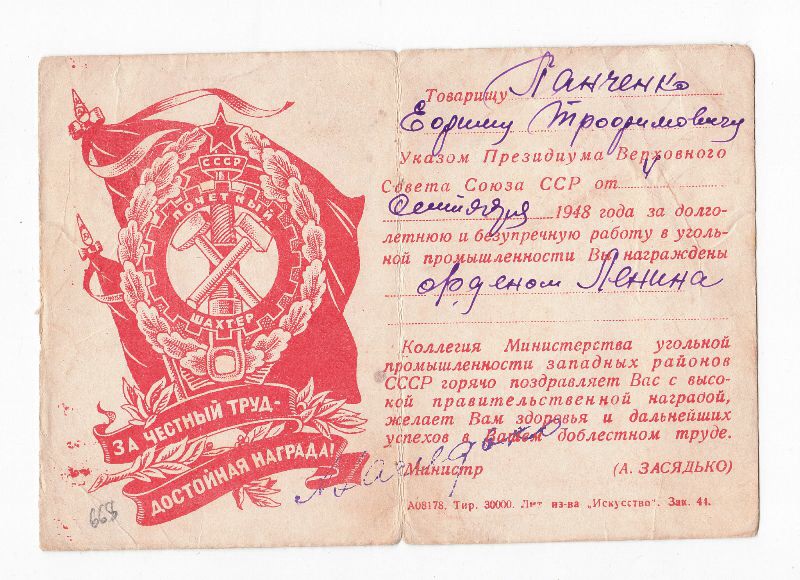 СССР
ПОЧЕТНЫЙ
ШАХТЕР
ЗА ЧЕСТНЫЙ ТРУД-
ДОСТОЙНАЯ НАГРАДА!
668
Товарищу Панченко
Ефиму Трофимовичу
Указом Президиума Верховного
Совета Союза ССР от 4
сентября 1948 года за долго-
летнюю и безупречную работу в уголь-
ной промышленности Вы награждены
орденом Ленина
Коллегия Министерства угольной
промышленности западных районов
СССР горячо поздравляет Вас с высо-
кой правительственной наградой,
желает Вам здоровья и дальнейших
успехов в Вашем доблестном труде.
Министр (А. ЗАСЯДЬКО)
А08178. Тир. 30000. Лит. из-ва „Искусство". Зак. 44.